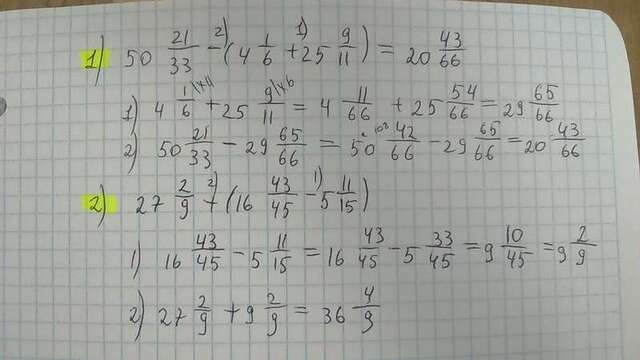 1) 50 21/33 - (4 1/6 + 25 9/11) = 20 43/66
1) 4 1/6 + 25 9/11 = 4 11/66 + 25 54/66 = 29 65/66
2) 50 21/33 - 29 65/66 = 50 42/66 - 29 65/66 = 20 43/66
2) 27 2/9 + (16 43/45 - 5 11/15)
1) 16 43/45 - 5 11/15 = 16 43/45 - 5 33/45 = 9 10/45 = 9 2/9
2) 27 2/9 + 9 2/9 = 36 4/9